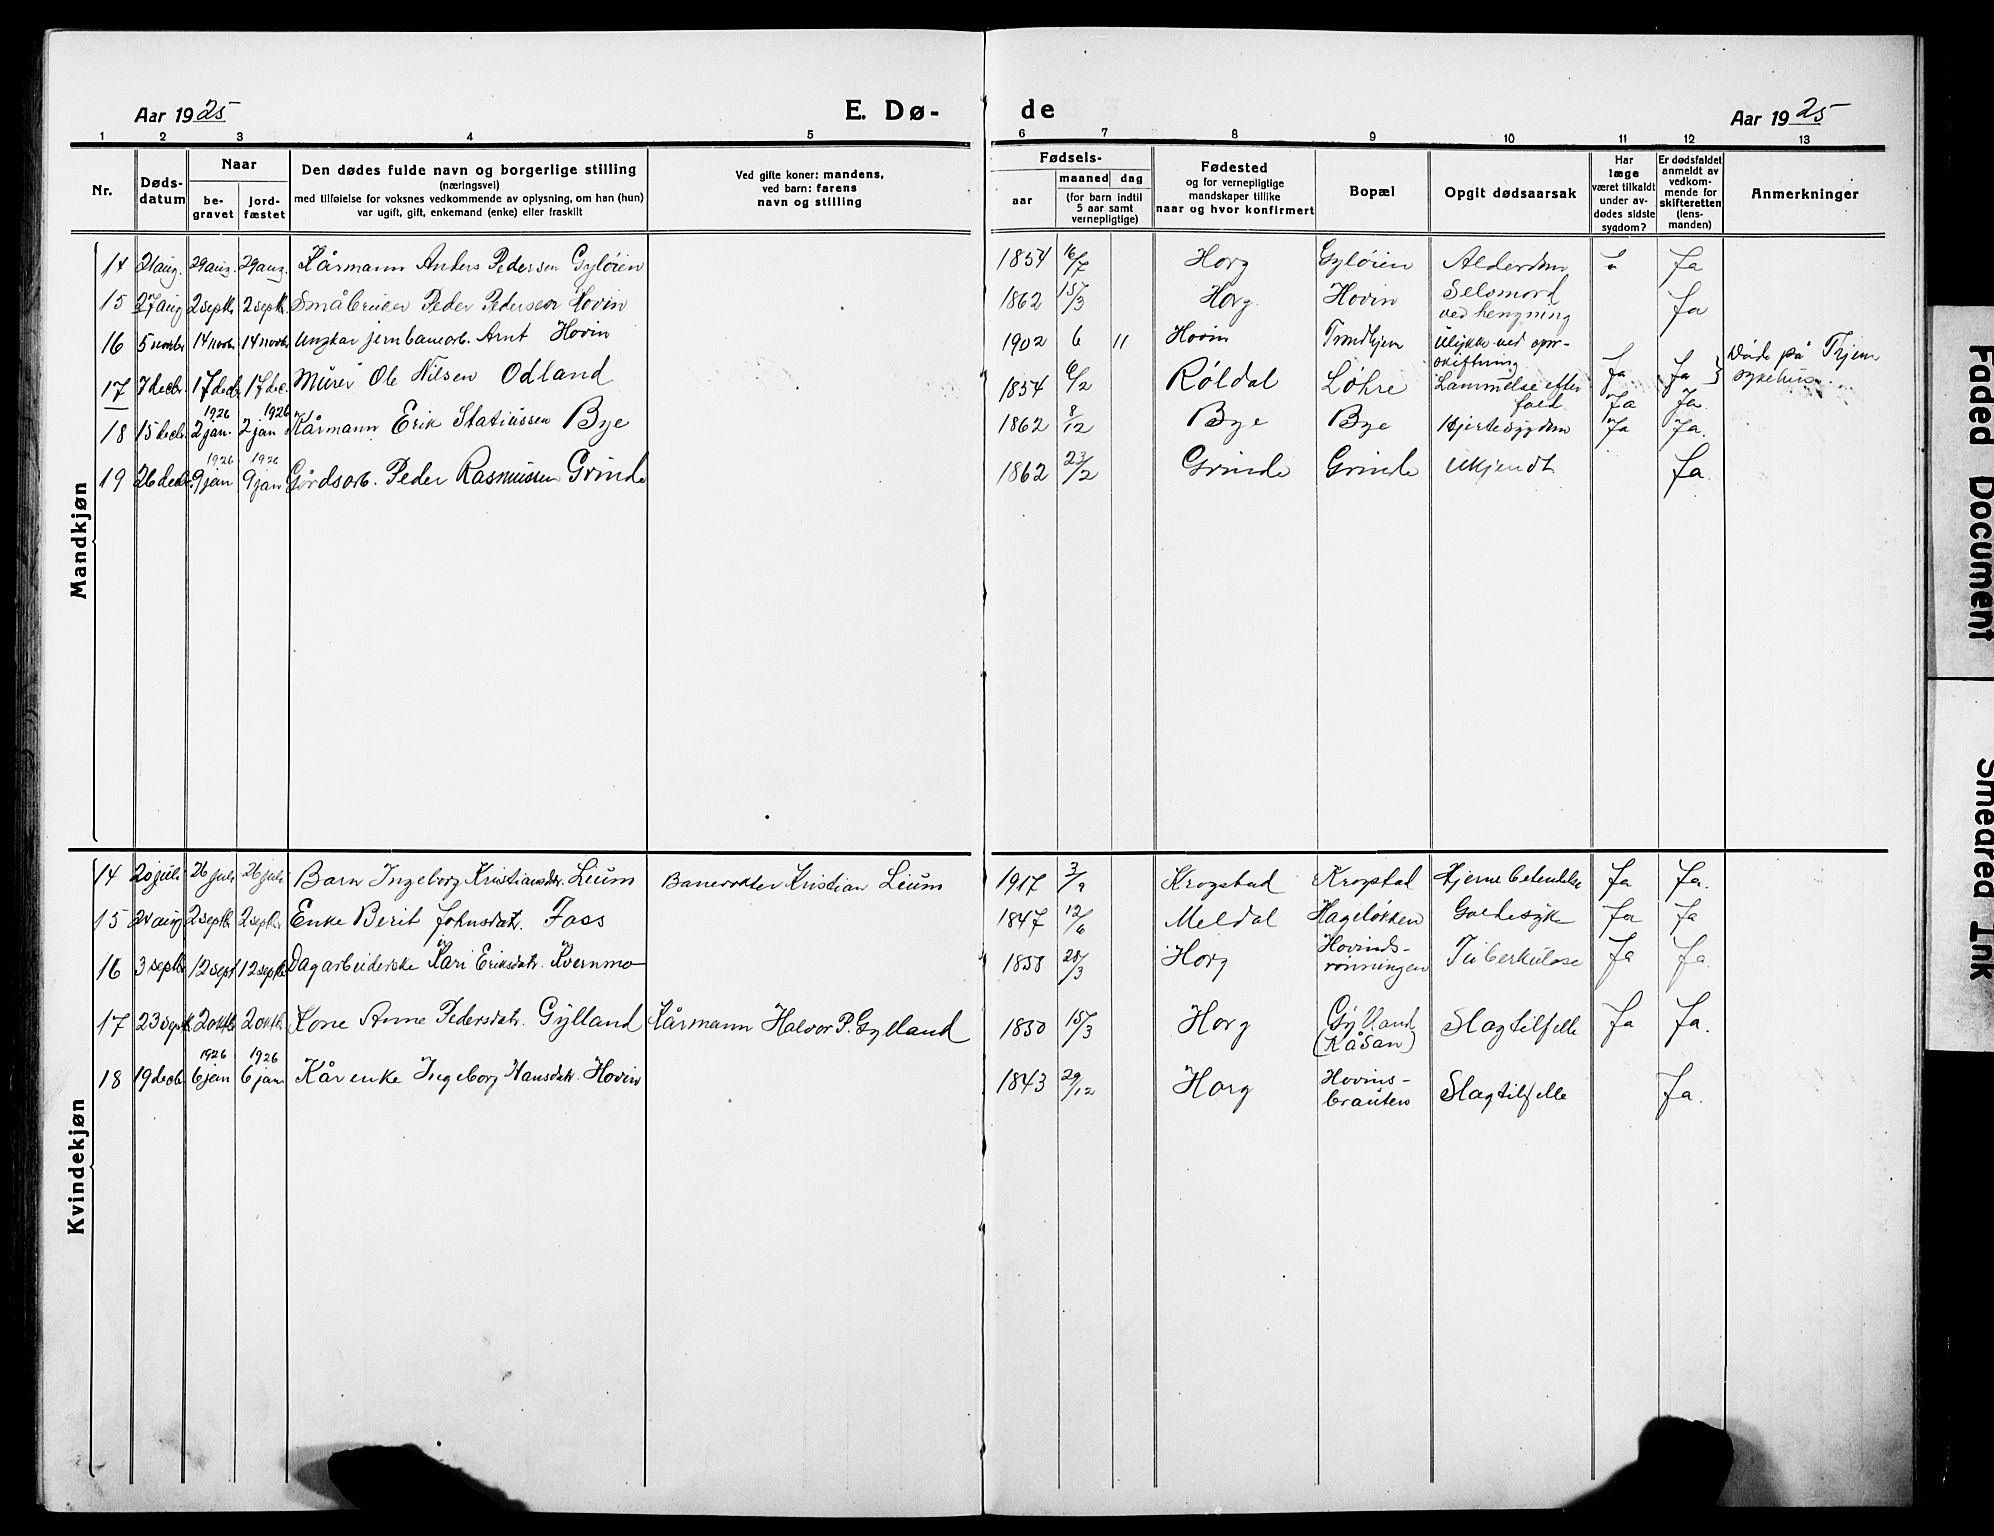 Aar 1925
E. Dø-
de
Aar 1925
1 2 3 4 5 6 7 8 9 10 11 12 13
Nr.
Døds-
datum
Naar
be-
gravet
jord-
fæstet
Den dødes fulde navn og borgerlige stilling
(næringsvei)
med tilføielse for voksnes vedkommende av oplysning, om han (hun)
var ugift, gift, enkemand (enke) eller fraskilt
Ved gifte koner: mandens,
ved barn: farens
navn og stilling
Fødsels-
aar
maaned dag
(for barn indtil
5 aar samt
vernepligtige)
Fødested
og for vernepligtige
mandskaper tillike
naar og hvor konfirmert
Bopæl
Opgit dødsaarsak
Har
læge
været tilkaldt
under av-
dødes sidste
sygdom?
Er dødsfaldet
anmeldt av
vedkom-
mende for
skifteretten
(lens-
manden)
Anmerkninger
Mandkjøn
14 21 aug. 29 aug. 29 aug. Kårmann Anders Pedersen Gyløien 1854 16/7 Horg Gyløien Alderdom Ja
15 27 aug 2 septbr 2 septbr Småbruker Peder Pedersen Hovin 1862 15/3 Horg. Hovin Selvmord
ved hengning Ja
16 5 novbr 14 novbr 14 novbr Ungkar jernbanearb. Arnt Hovin 1902 6 11 Hovin Trondhjem Ulykke ved opor-
skiftning Ja Ja } Døde på Trjem
sykehus.
17 7 decbr. 17 decbr 17 dec. Murer Ole Nilsen Odland 1854 6/2 Røldal Løhre Lammelse efter
fald Ja Ja.
18 15 decbr. 1926 2 jan. 1926 2 jan Kårmann Erik Statiussen Bye 1862 8/12 Bye Bye Hjertesygdom Ja Ja.
19 26 decbr. 1926 9 jan 1926 9 jan Gårdsarb. Peder Rasmussen Grinde 1862 23/2 Grinde Grinde Ukjendt Ja.
Kvindekjøn
14 20 juli 26 juli 26 juli Barn Ingeborg Kristiansdtr. Leium Banevokter Kristian Leium 1917 3/9 Krogstad Krogstad Hjernebetendelse Ja Ja.
15 24 aug 2 septbr 2 septbr. Enke Berit Johnsdatr. Foss 1847 12/6 Meldal Hageløkken Galdesyke Ja Ja
16 3 septbr 12 sept 12 septbr Dagarbeiderske Kari Eriksdatr. Kvernmo 1858 28/3 Horg Hovinds-
rønningen Tuberkulose Ja Ja.
17 23 septbr. 2 oktbr 2 oktbr Kone Anne Pedersdatr. Gylland Kårmann Halvor P. Gylland 1850 15/3 Horg Gylland
(Kåsan) Slagtilfelle Ja Ja.
18 19 decbr 1926 6 jan 1926 6 jan Kårenke Ingeborg Hansdatr. Hovin 1843 29/12 Horg Hovins-
brauten Slagtilfelle Ja.
Faded Document
Smeared Ink